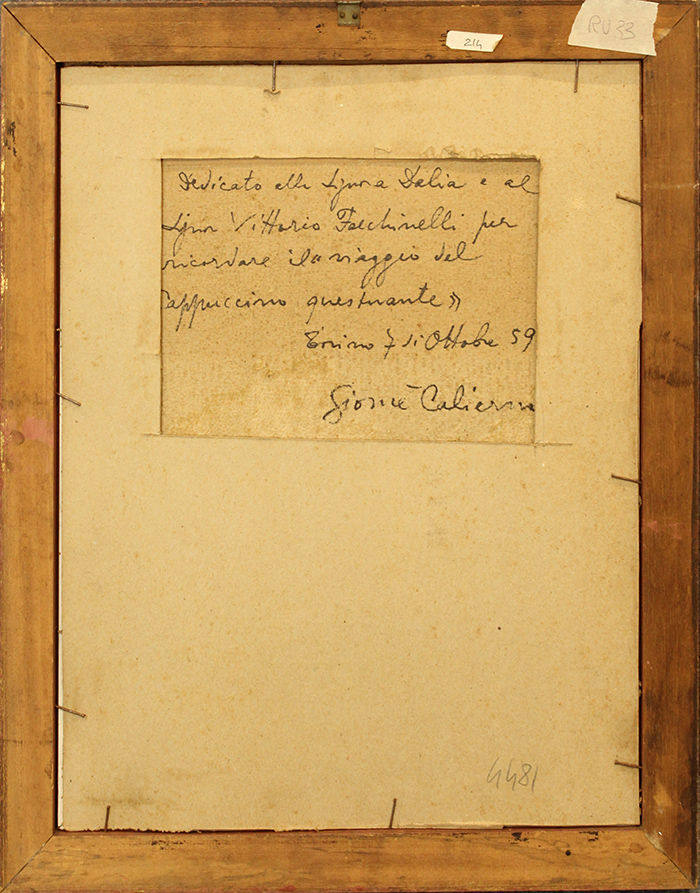 214
RV 33
Dedicato alla Signora Dalia e al
Signor Vittorio Facchinelli per
ricordare il "viaggio del
Cappuccino questuante"
Torino 7 di Ottobre 59
Giosuè Calierno
4481